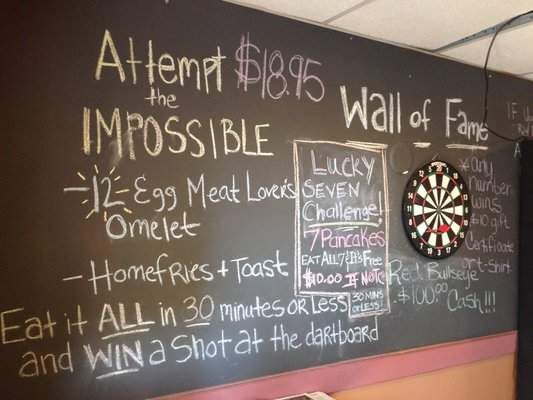 Attempt $18.95
the
IMPOSSIBLE
- 12 Egg Meat Lover's
Omelet
- Homefries + Toast
Eat it ALL in 30 minutes or Less
and WIN a shot at the dartboard
Lucky
SEVEN
Challenge!
7 Pancakes
EAT ALL 7 It's Free
$10.00 IF NOT
30 MINS
or LESS!
Wall of Fame
* any
Number
wins
$10 gift
Certificate
or t-shirt
Red Bullseye
$100.00 Cash!!!
IF